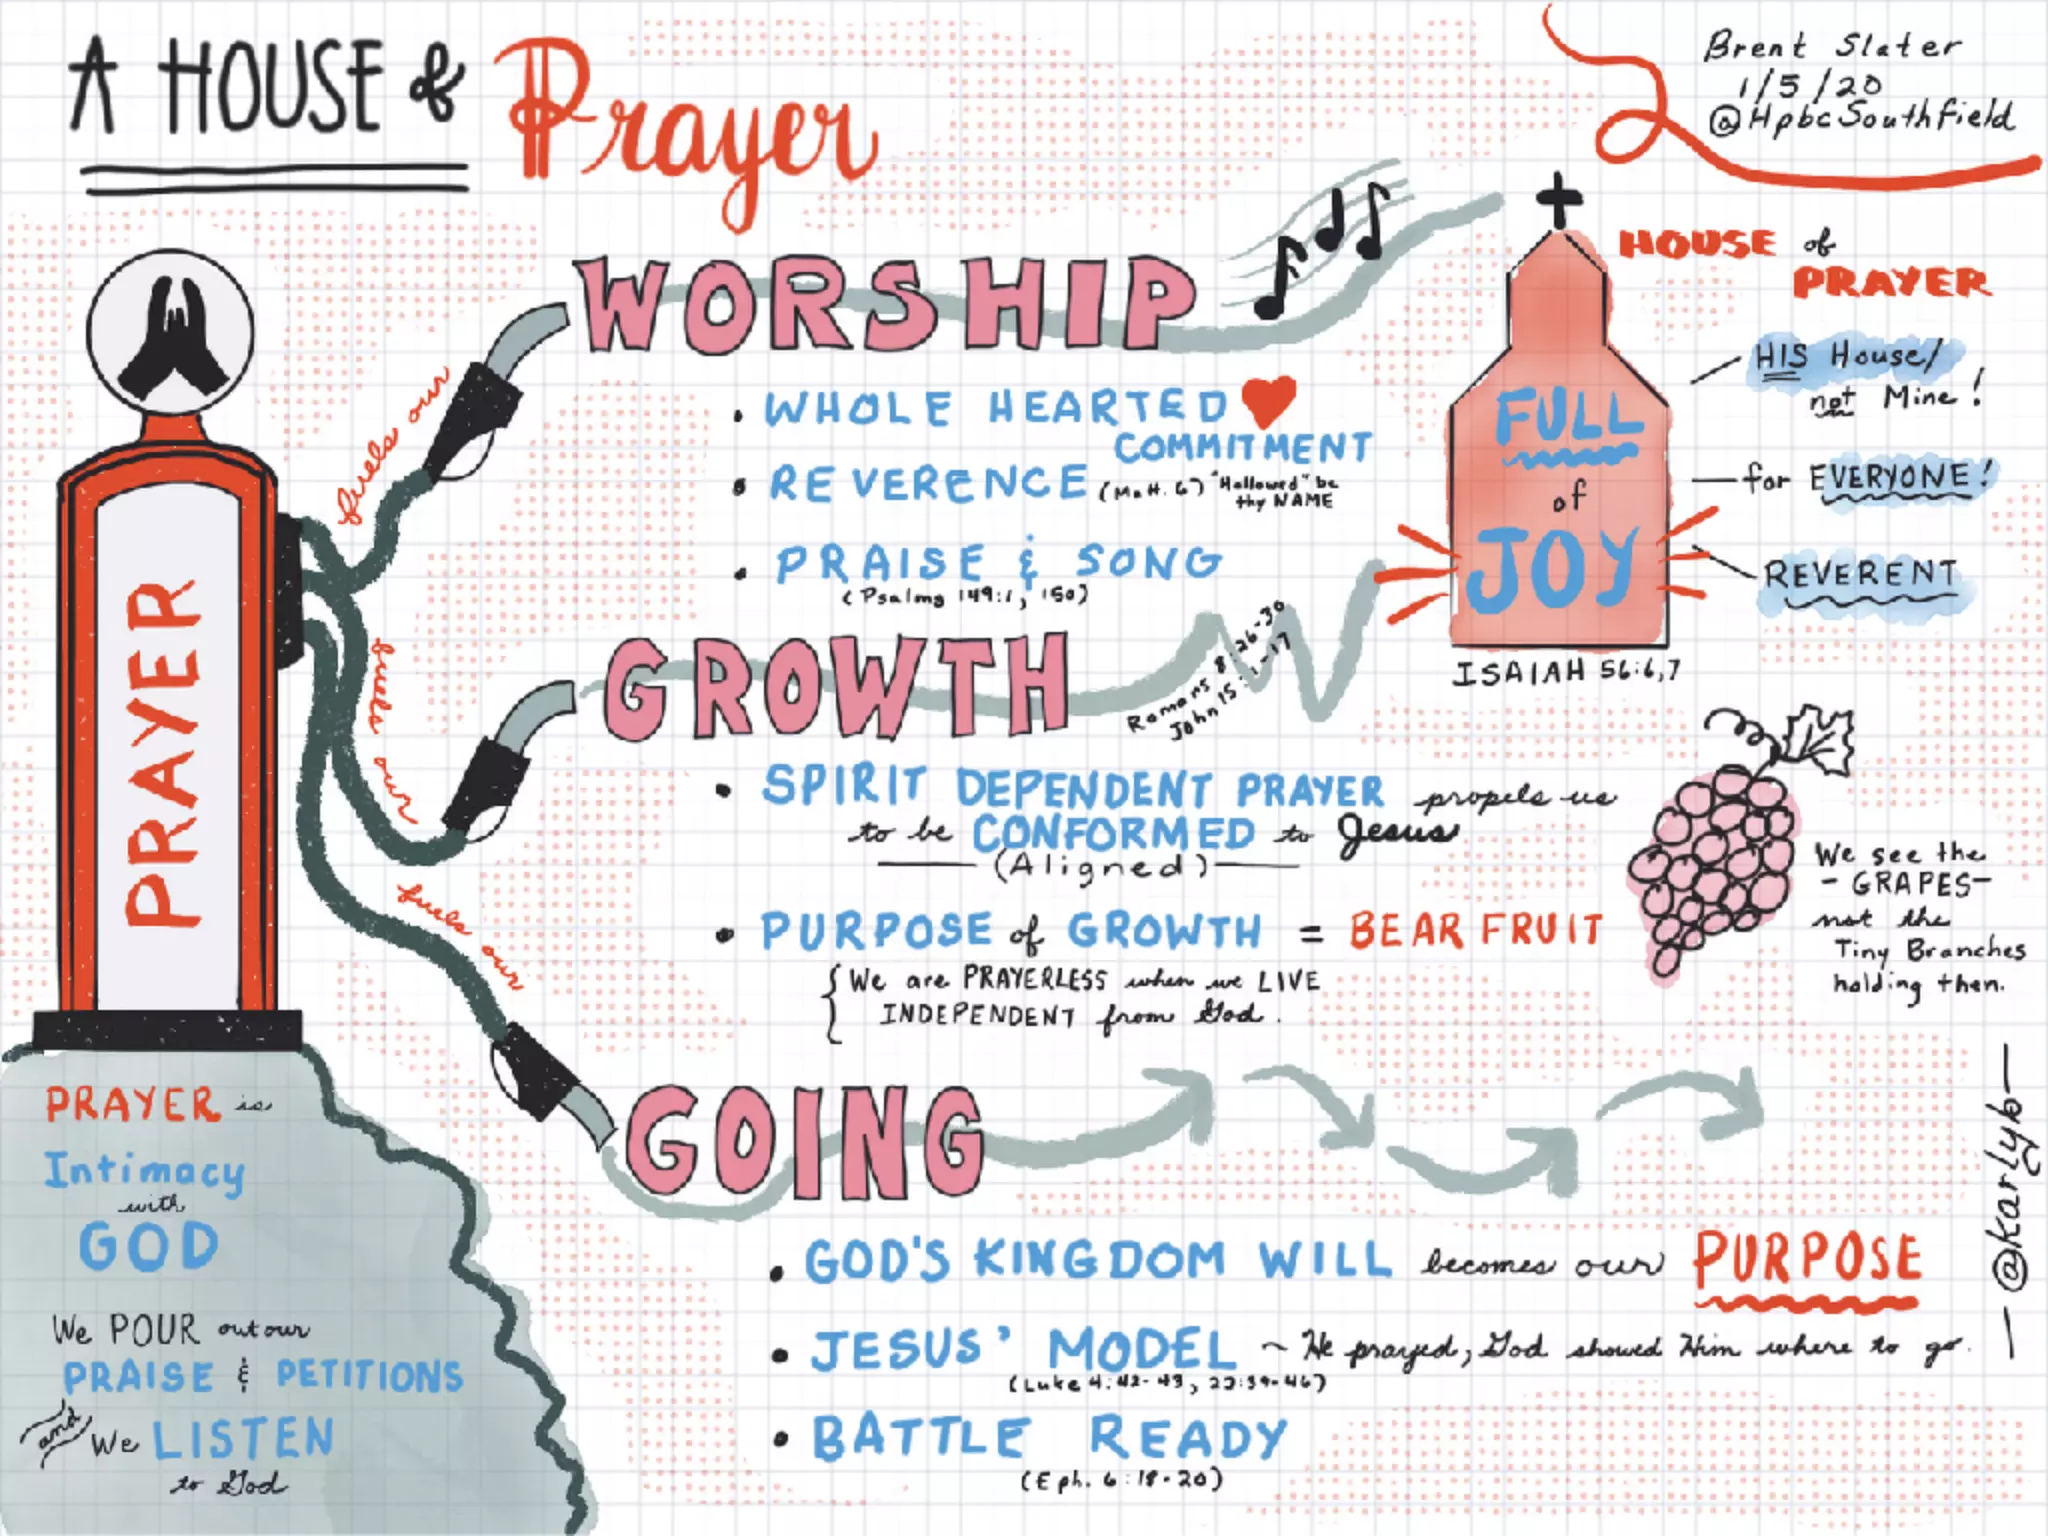 A HOUSE of Prayer
Brent Slater
1/5/20
@HpbcSouthfield
PRAYER
fuels our
WORSHIP
• WHOLE HEARTED
COMMITMENT
• REVERENCE (Matt. 6) "Hallowed" be
thy NAME
• PRAISE & SONG
(Psalms 149:1, 150)
HOUSE of
PRAYER
HIS House/
not Mine!
for EVERYONE!
REVERENT
FULL
of
JOY
ISAIAH 56:6,7
fuels our
GROWTH
Romans 8:26-30
John 15:1-17
• SPIRIT DEPENDENT PRAYER propels us
to be CONFORMED to Jesus
(Aligned)
• PURPOSE of GROWTH = BEAR FRUIT
{We are PRAYERLESS when we LIVE
INDEPENDENT from God.
We see the
-GRAPES-
not the
Tiny Branches
holding then.
fuels our
GOING
• GOD'S KINGDOM WILL becomes our PURPOSE
• JESUS' MODEL ~ He prayed, God showed Him where to go.
(Luke 4:42-43, 22:39-46)
• BATTLE READY
(Eph. 6:18-20)
PRAYER is
Intimacy
with
GOD
We POUR out our
PRAISE & PETITIONS
and We LISTEN
to God
— @karlyb —